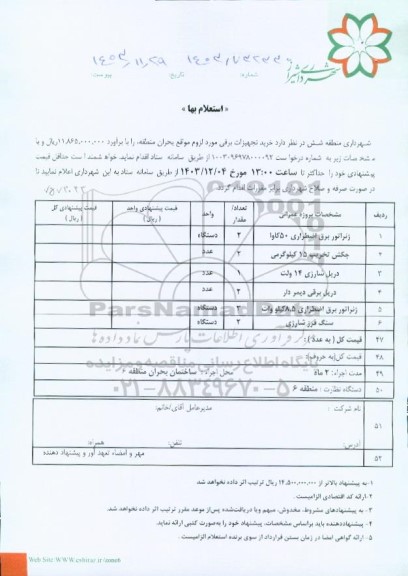 شهرداری شیراز
شماره:
تاریخ
پیوست
« استعلام بها »
شهرداری منطقه شش در نظر دارد خرید تجهیزات برقی مورد لزوم مواقع بحران منطقه، را با برآورد ۱۱،۸۶۵،۰۰۰،۰۰۰ریال و با
مشخصات زیر به شماره درخواست ۱۱۰۰۳۰۹۶۹۷۸۰۰۰۰۹۲ از طریق سامانه ستاد اقدام نماید. خواهشمند است حداقل قیمت
پیشنهادی خود را حداکثر تا ساعت ۱۳:۰۰ مورخ ۱۴۰۳/۱۲/۰۴ از طریق سامانه ستاد به این شهرداری اعلام نمایید تا
در صورت صرفه و صلاح شهرداری برابر مقررات اقدام گردد.
ردیف مشخصات پروژه عمرانی تعداد/ مقدار واحد قیمت پیشنهادی واحد (ریال) قیمت پیشنهادی کل (ریال)
۱ ژنراتور برق اضطراری ۵۰کاوا ۲ دستگاه
۲ چکش تخریب ۱۵ کیلوگرمی ۲ عدد
۳ دریل شارژی ۱۴ ولت ۱ عدد
۴ دریل برقی دیمر دار ۲ عدد
۵ ژنراتور برق اضطراری ۸.۵کیلووات ۲ دستگاه
۶ سنگ فرز شارژی ۲ دستگاه
۴۷ قیمت کل ( به عدد ) :
۴۸ قیمت کل(به حروف):
۴۹ مدت اجراء: ۲ ماه محل اجراء: ساختمان بحران منطقه ۶
۵۰ دستگاه نظارت : منطقه ۶
۵۱ نام شرکت : مدیرعامل آقای/خانم:
آدرس: تلفن: همراه:
۵۲ مهر و امضاء تعهد آور و پیشنهاد دهنده
۱-به پیشنهاد بالاتر از ۱۴،۵۰۰،۰۰۰،۰۰۰ ریال ترتیب اثر داده نخواهد شد.
۲-ارائه کد اقتصادی الزامیست.
۳- به پیشنهادهای مشروط، مخدوش، مبهم ویا دریافت‌شده پس‌از موعد مقرر ترتیب اثر داده نخواهد شد.
۴- پیشنهاددهنده باید براساس مشخصات، پیشنهاد خود را به‌صورت کتبی ارائه نماید.
۵- ارائه گواهی امضا در زمان بستن قرارداد از سوی برنده استعلام الزامیست.
Web Site: WWW.eshiraz.ir/zone6
ParsNamadData
پایگاه اطلاع رسانی مناقصه و مزایده
۰۲۱-۸۸۳۴۹۶۷۰-۵